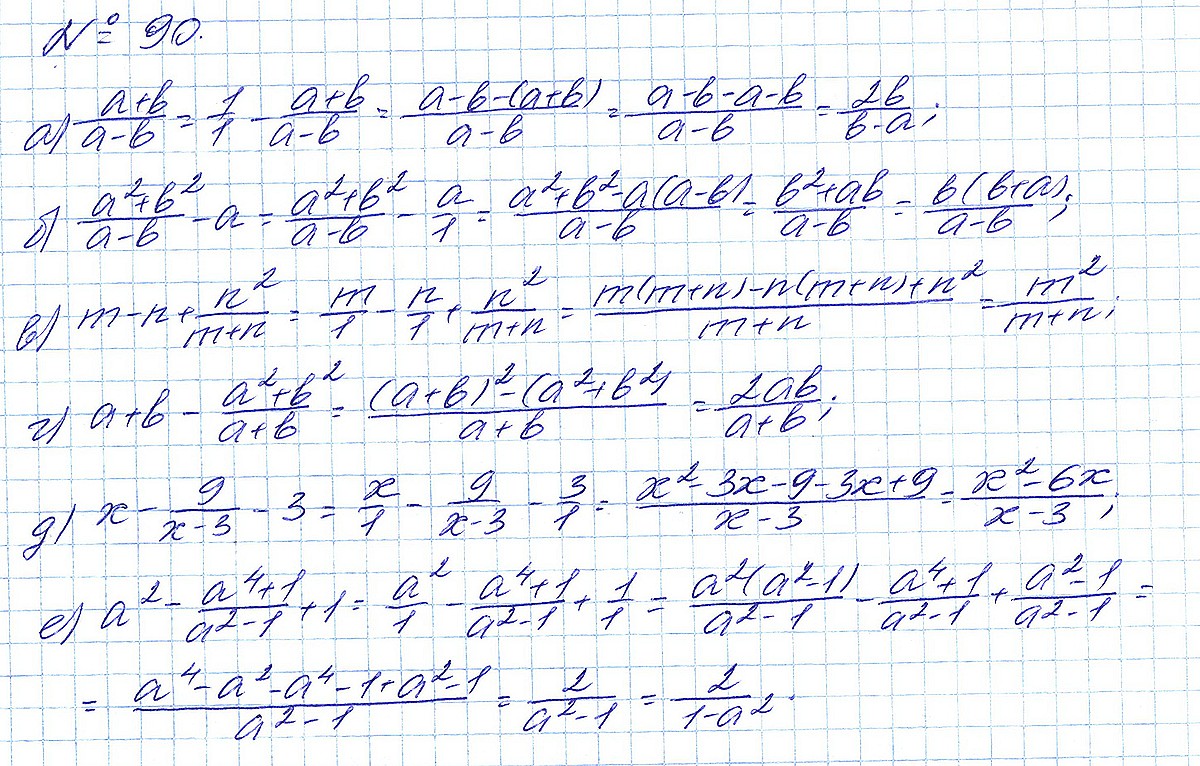 № 90.
а) (a+b)/(a-b) = 1/1 - (a+b)/(a-b) = (a-b-(a+b))/(a-b) = (a-b-a-b)/(a-b) = 2b/(b-a);
б) (a²+b²)/(a-b) - a = (a²+b²)/(a-b) - a/1 = (a²+b²-a(a-b))/(a-b) = (b²+ab)/(a-b) = b(b+a)/(a-b);
в) m-n+n²/(m+n) = m/1 - n/1 + n²/(m+n) = (m(m+n)-n(m+n)+n²)/(m+n) = m²/(m+n);
г) a+b - (a²+b²)/(a+b) = ((a+b)²-(a²+b²))/(a+b) = 2ab/(a+b);
д) x - 9/(x-3) - 3 = x/1 - 9/(x-3) - 3/1 = (x²-3x-9-3x+9)/(x-3) = (x²-6x)/(x-3);
е) a² - (a⁴+1)/(a²-1) + 1 = a²/1 - (a⁴+1)/(a²-1) + 1/1 = a²(a²-1)/(a²-1) - (a⁴+1)/(a²-1) + (a²-1)/(a²-1) =
= (a⁴-a²-a⁴-1+a²-1)/(a²-1) = 2/(a²-1) = 2/(1-a²).